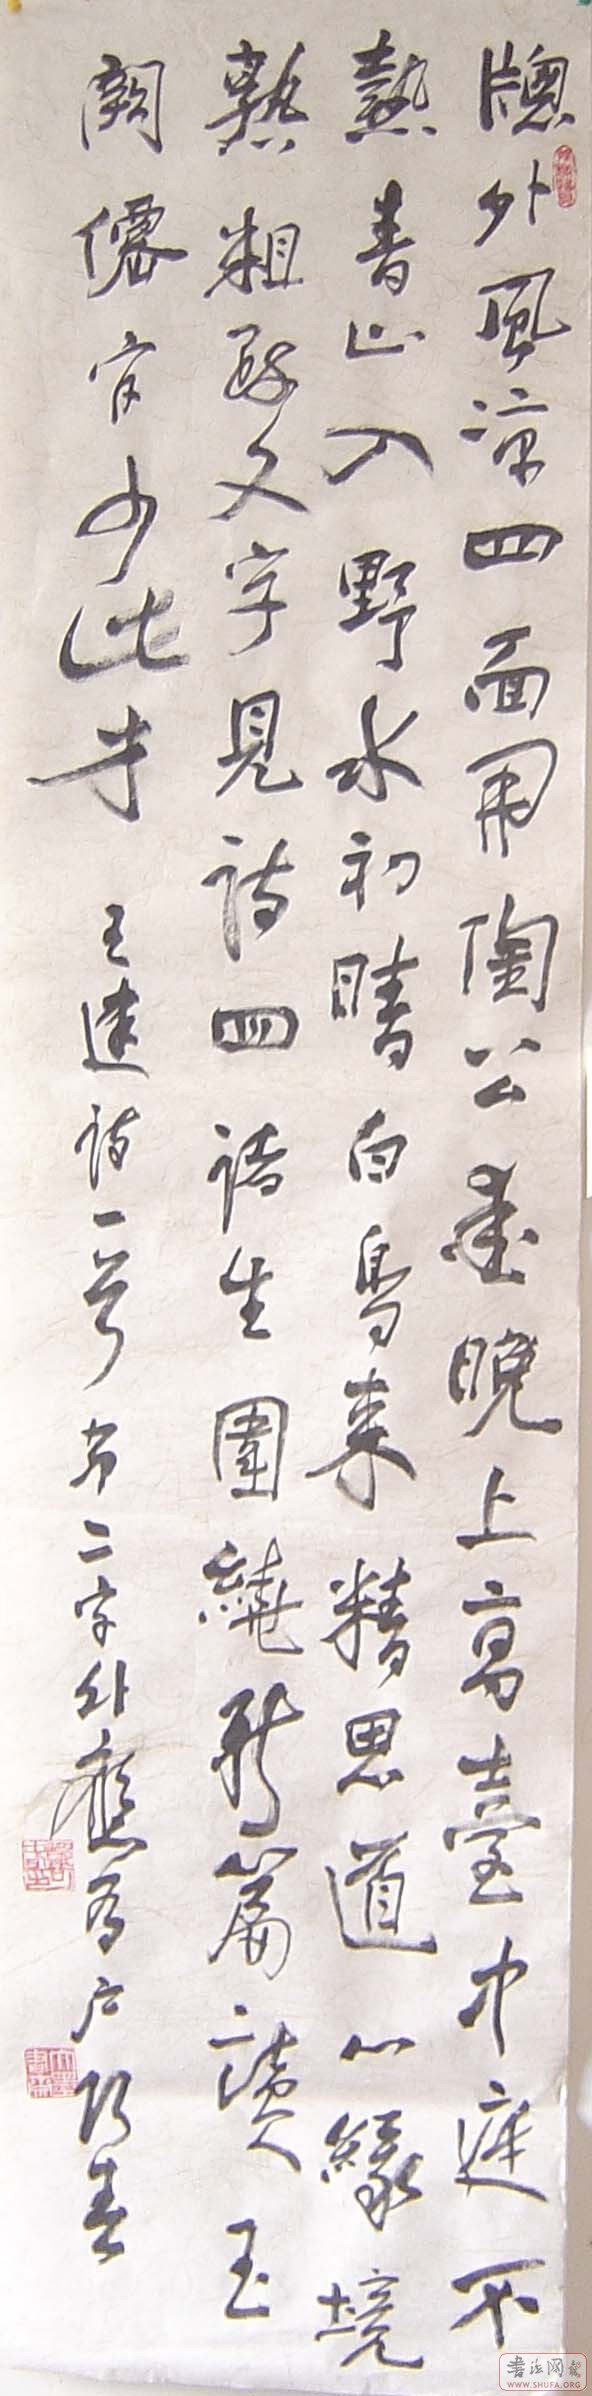 窻外風涼四面開陶公愛晚上高臺中庭不
熱青山入野水初晴白鳥来精思道心緣境
熟粗疎文字見詩四諸生圍繞新篇讀玉
闕僊官少此才 王建詩一首 二字外應爲
書法网
WWW.SHUFA.ORG